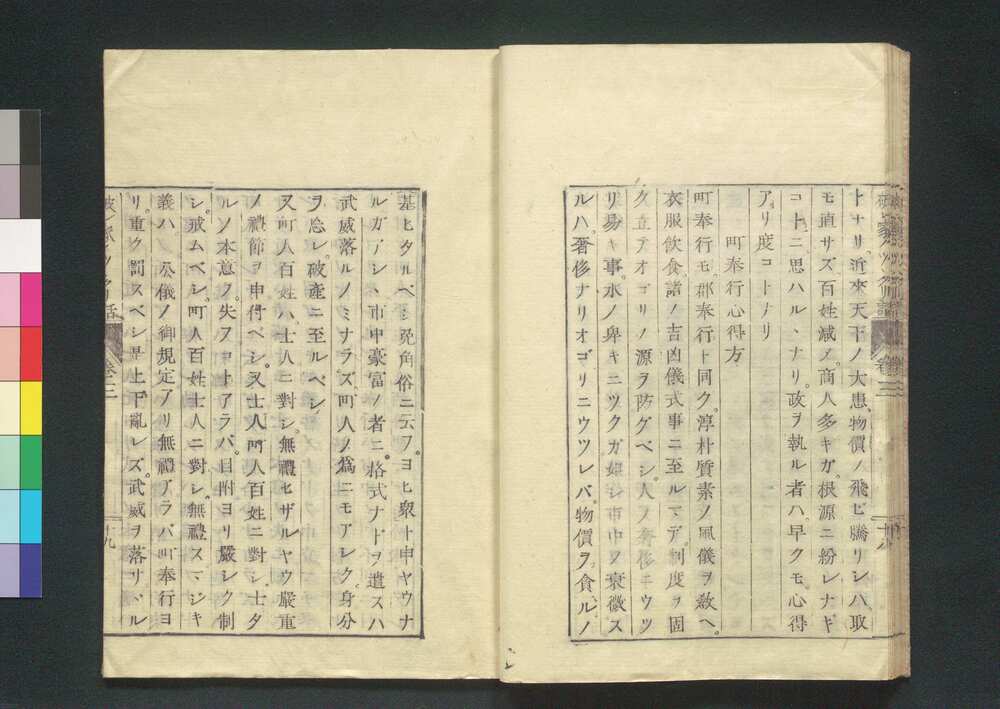 トナリ近來天下ノ大患物價ノ飛ビ騰リシハ取
モ直サズ百姓減ノ商人多キガ根源ニ紛レナキ
コトニ思ハルヽナリ政ヲ執ル者ハ早クモ心得
アリ度コトナリ
町奉行心得方
町奉行モ郡奉行ト同ク淳朴質素ノ風儀ヲ敎ヘ
衣服飮食諸ノ吉凶儀式事ニ至ルマデ制度ヲ固
ク立テオゴリノ源ヲ防グベシ人ノ奢侈ニウツ
リ易キ事水ノ卑キニツクガ如シ市中ヲ衰微ス
ルハ奢侈ナリオゴリニウツレバ物價ヲ貪ルノ
基ヒタルベシ兎角俗ニ云フヨヒ衆ト申ヤウナ
ルガアシヽ市中豪富ノ者ニ格式ナドヲ遣スハ
武威落ルノミナラズ町人ノ爲ニモアシク身分
ヲ忘レ破産ニ至ルベシ
又町人百姓ハ士人ニ對シ無禮セザルヤウ嚴重
ノ禮節ヲ申付ベシ又士人町人百姓ニ對シ士タ
ルノ本意ヲ失フコトアラバ目附ヨリ嚴シク制
シ戒ムベシ町人百姓士人ニ對シ無禮スマジキ
義ハ公儀ノ御規定アリ無禮アラバ町奉行ヨ
リ重ク罰スベシ是上下亂レズ武威ヲ落サヾル
卷三
十九